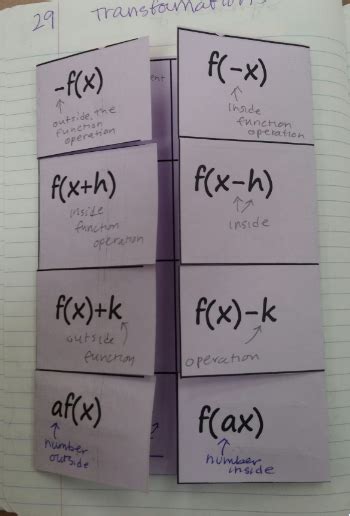 29 Transformations
-f(x)
outside, the
function
operation
f(-x)
inside
function
operation
f(x+h)
inside
function
operation
f(x-h)
inside
f(x)+k
outside
function
f(x)-k
operation
af(x)
number
outside
f(ax)
number
inside